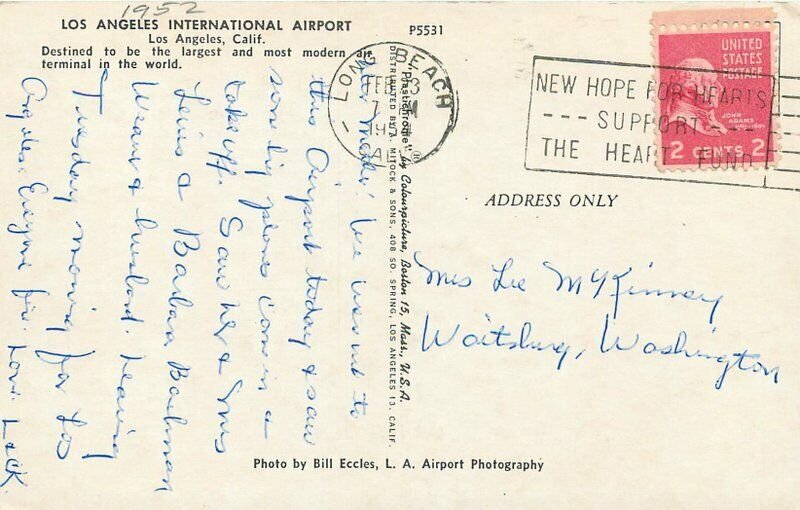 1952
LOS ANGELES INTERNATIONAL AIRPORT
Los Angeles, Calif.
Destined to be the largest and most modern air
terminal in the world.
P5531
LONG BEACH
FEB
CALIF
NEW HOPE FOR HEARTS
--- SUPPORT ---
THE HEART FUND
UNITED
STATES
POSTAGE
JOHN
ADAMS
2 CENTS 2
"Plastichrome" ® by Colourpicture, Boston 15, Mass., U.S.A.
DISTRIBUTED BY A. MITOCK & SONS, 408 SO. SPRING, LOS ANGELES 13, CALIF.
ADDRESS ONLY
Mrs Lee McKinney
Waitsburg, Washington
Dear Mother: We went to
this Airport today & saw
some big planes come in &
take off. Saw Mr & Mrs
Lewis & Barbara
& husband. Leaving
Tuesday morning for Los
Angeles. Everyone fine. Love. Jack.
Photo by Bill Eccles, L. A. Airport Photography